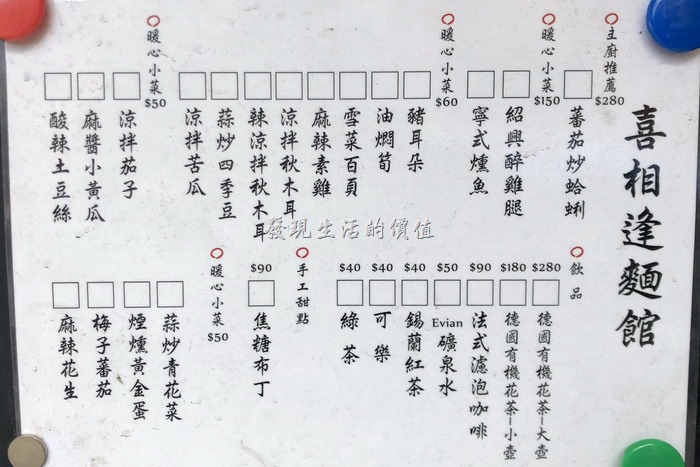 喜相逢麵館
主廚推薦 $280
蕃茄炒蛤蜊
暖心小菜 $150
紹興醉雞腿
寧式燻魚
暖心小菜 $60
豬耳朵
油燜筍
雪菜百頁
麻辣素雞
涼拌秋木耳
辣涼拌秋木耳
蒜炒四季豆
涼拌苦瓜
暖心小菜 $50
涼拌茄子
麻醬小黃瓜
酸辣土豆絲
飲品
$280 德國有機花茶-大壺
$180 德國有機花茶-小壺
$90 法式濾泡咖啡
$50 Evian礦泉水
$40 錫蘭紅茶
$40 可樂
$40 綠茶
手工甜點
$90 焦糖布丁
暖心小菜 $50
蒜炒青花菜
煙燻黃金蛋
梅子蕃茄
麻辣花生
發現生活的價值